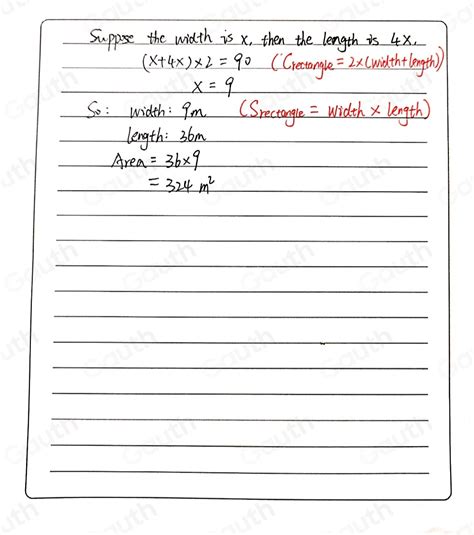 Suppose the width is x, then the length is 4x.
(x+4x)×2 = 90 (Crectangle = 2×(width+length))
x = 9
So: width: 9m (Srectangle = width × length)
length: 36m
Area = 36×9
= 324 m²
Gauth